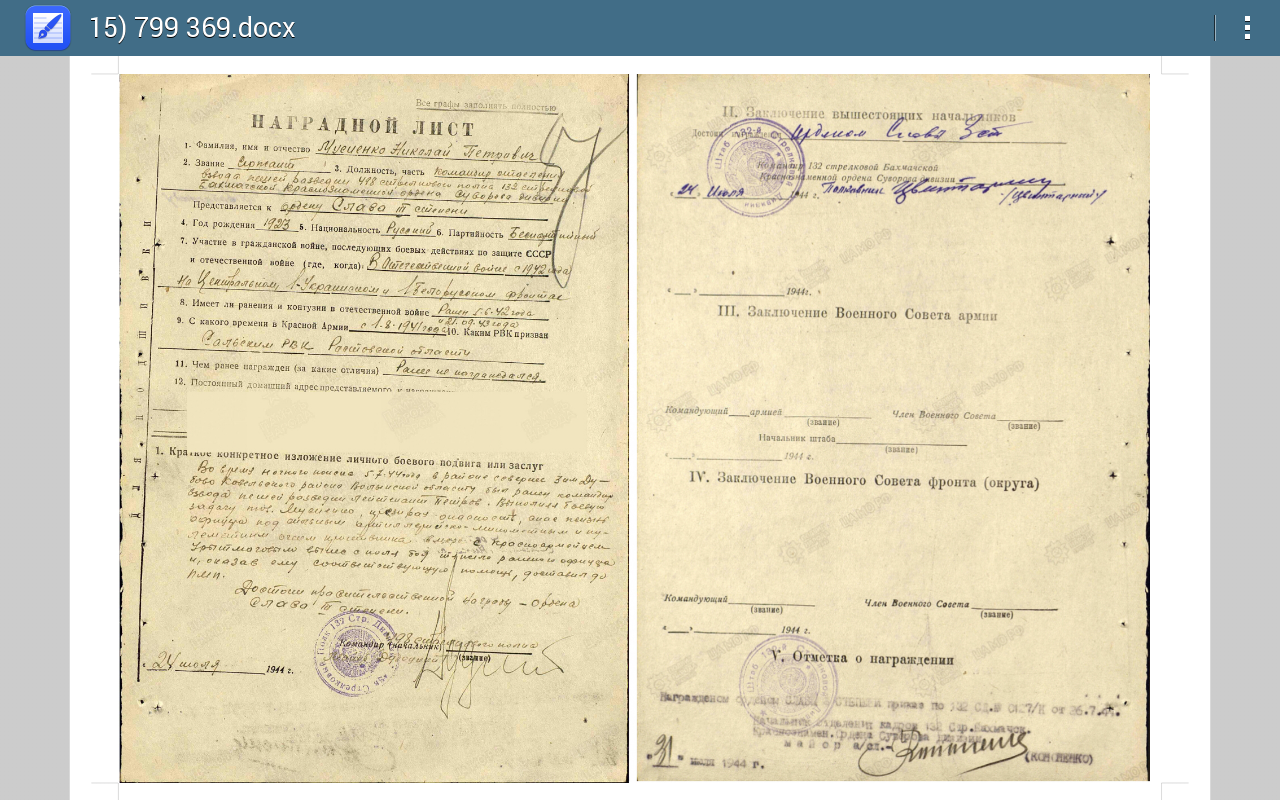 15) 799 369.docx
Все графы заполнять полностью
НАГРАДНОЙ ЛИСТ
1. Фамилия, имя и отчество Мусиенко Николай Петрович
2. Звание Сержант 3. Должность, часть командир отделения
взвода пешей разведки 498 стрелкового полка 132 стрелковой
Бахмачской Краснознаменной ордена Суворова дивизии
Представляется к ордену Слава III степени
4. Год рождения 1923 5. Национальность Русский 6. Партийность Беспартийный
7. Участие в гражданской войне, последующих боевых действиях по защите СССР
и отечественной войне (где, когда): В Отечественной войне с 1942 года
на Центральном, 1-Украинском и 1 Белорусском фронтах
8. Имеет ли ранения и контузии в отечественной войне Ранен 5.6.42 года
и 21.09.43 года
9. С какого времени в Красной Армии с 1.8.1941 года 10. Каким РВК призван
Сальским РВК Ростовской области
11. Чем ранее награжден (за какие отличия) Ранее не награждался
12. Постоянный домашний адрес представляемого к
1. Краткое конкретное изложение личного боевого подвига или заслуг
Во время ночного поиска 5.7.44 года в районе севернее
Ковельского района Волынской области был ранен командир
взвода пешей разведки лейтенант Петров. Выполняя боевую
задачу тов. Мусиенко, спас жизнь
офицера под сильным артиллерийско-минометным и пу-
леметным огнем противника. вместе с красноармейцем
вынес с поля боя раненого офицера
и, оказав ему соответствующую помощь, доставил до
ПМП.
Достоин правительственной награды – Ордена
Слава III степени.
498 стрелкового полка
Командир (начальник)
(звание)
24 июля 1944 г.
II. Заключение вышестоящих начальников
Достоин Орденом Слава 3 ст
Командир 132 стрелковой Бахмачской
Краснознаменной ордена Суворова дивизии
24 Июля 1944 г. Полковник
„ __ „ 1944 г.
III. Заключение Военного Совета армии
Командующий армией Член Военного Совета
(звание) (звание)
Начальник штаба
(звание)
„ __ „ 1944 г.
IV. Заключение Военного Совета фронта (округа)
Командующий Член Военного Совета
(звание) (звание)
„ __ „ 1944 г.
V. Отметка о награждении
Награжден орденом СЛАВА СТЕПЕНИ приказ по 132 СД от 26.7.44г.
Начальник отделения кадров 132 Стр. Бахмачск.
Краснознамен. Ордена Суворова дивизии
майор а/сл.- (КОНОНЕНКО)
"31" июля 1944 г.